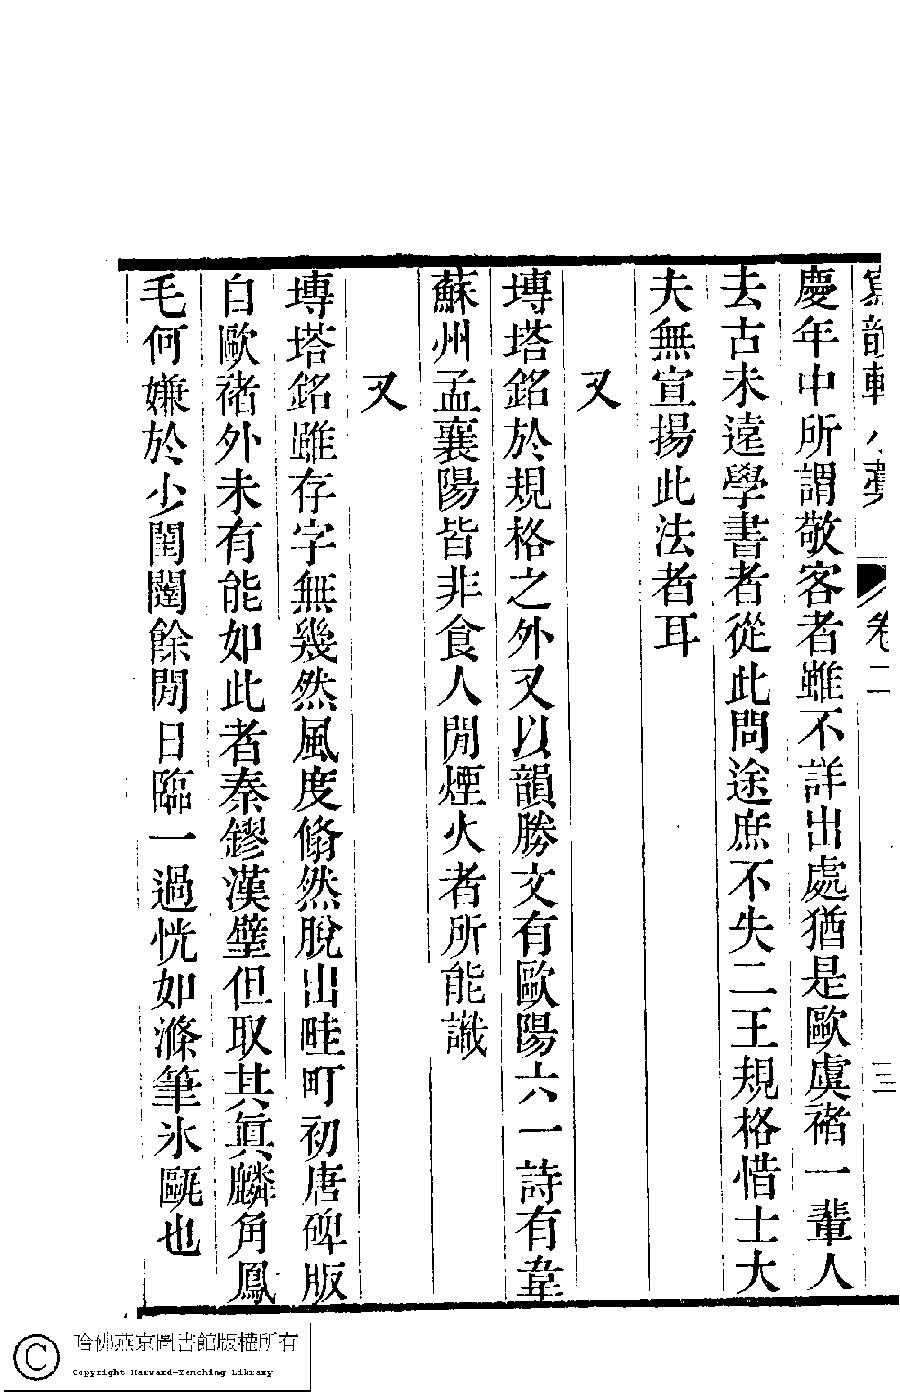 寫韻軒小稾 卷二 三
慶年中所謂敬客者雖不詳出處猶是歐虞褚一輩人
去古未遠學書者從此問途庶不失二王規格惜士大
夫無宣揚此法者耳
又
塼塔銘於規格之外又以韻勝文有歐陽六一詩有韋
蘇州孟襄陽皆非食人閒煙火者所能識
又
塼塔銘雖存字無幾然風度翛然脫出畦町初唐碑版
自歐褚外未有能如此者秦鏐漢璧但取其眞麟角鳳
毛何嫌於少閨闥餘閒日臨一過恍如滌筆氷甌也
哈佛燕京圖書館版權所有
Copyright Harvard-Yenching Library